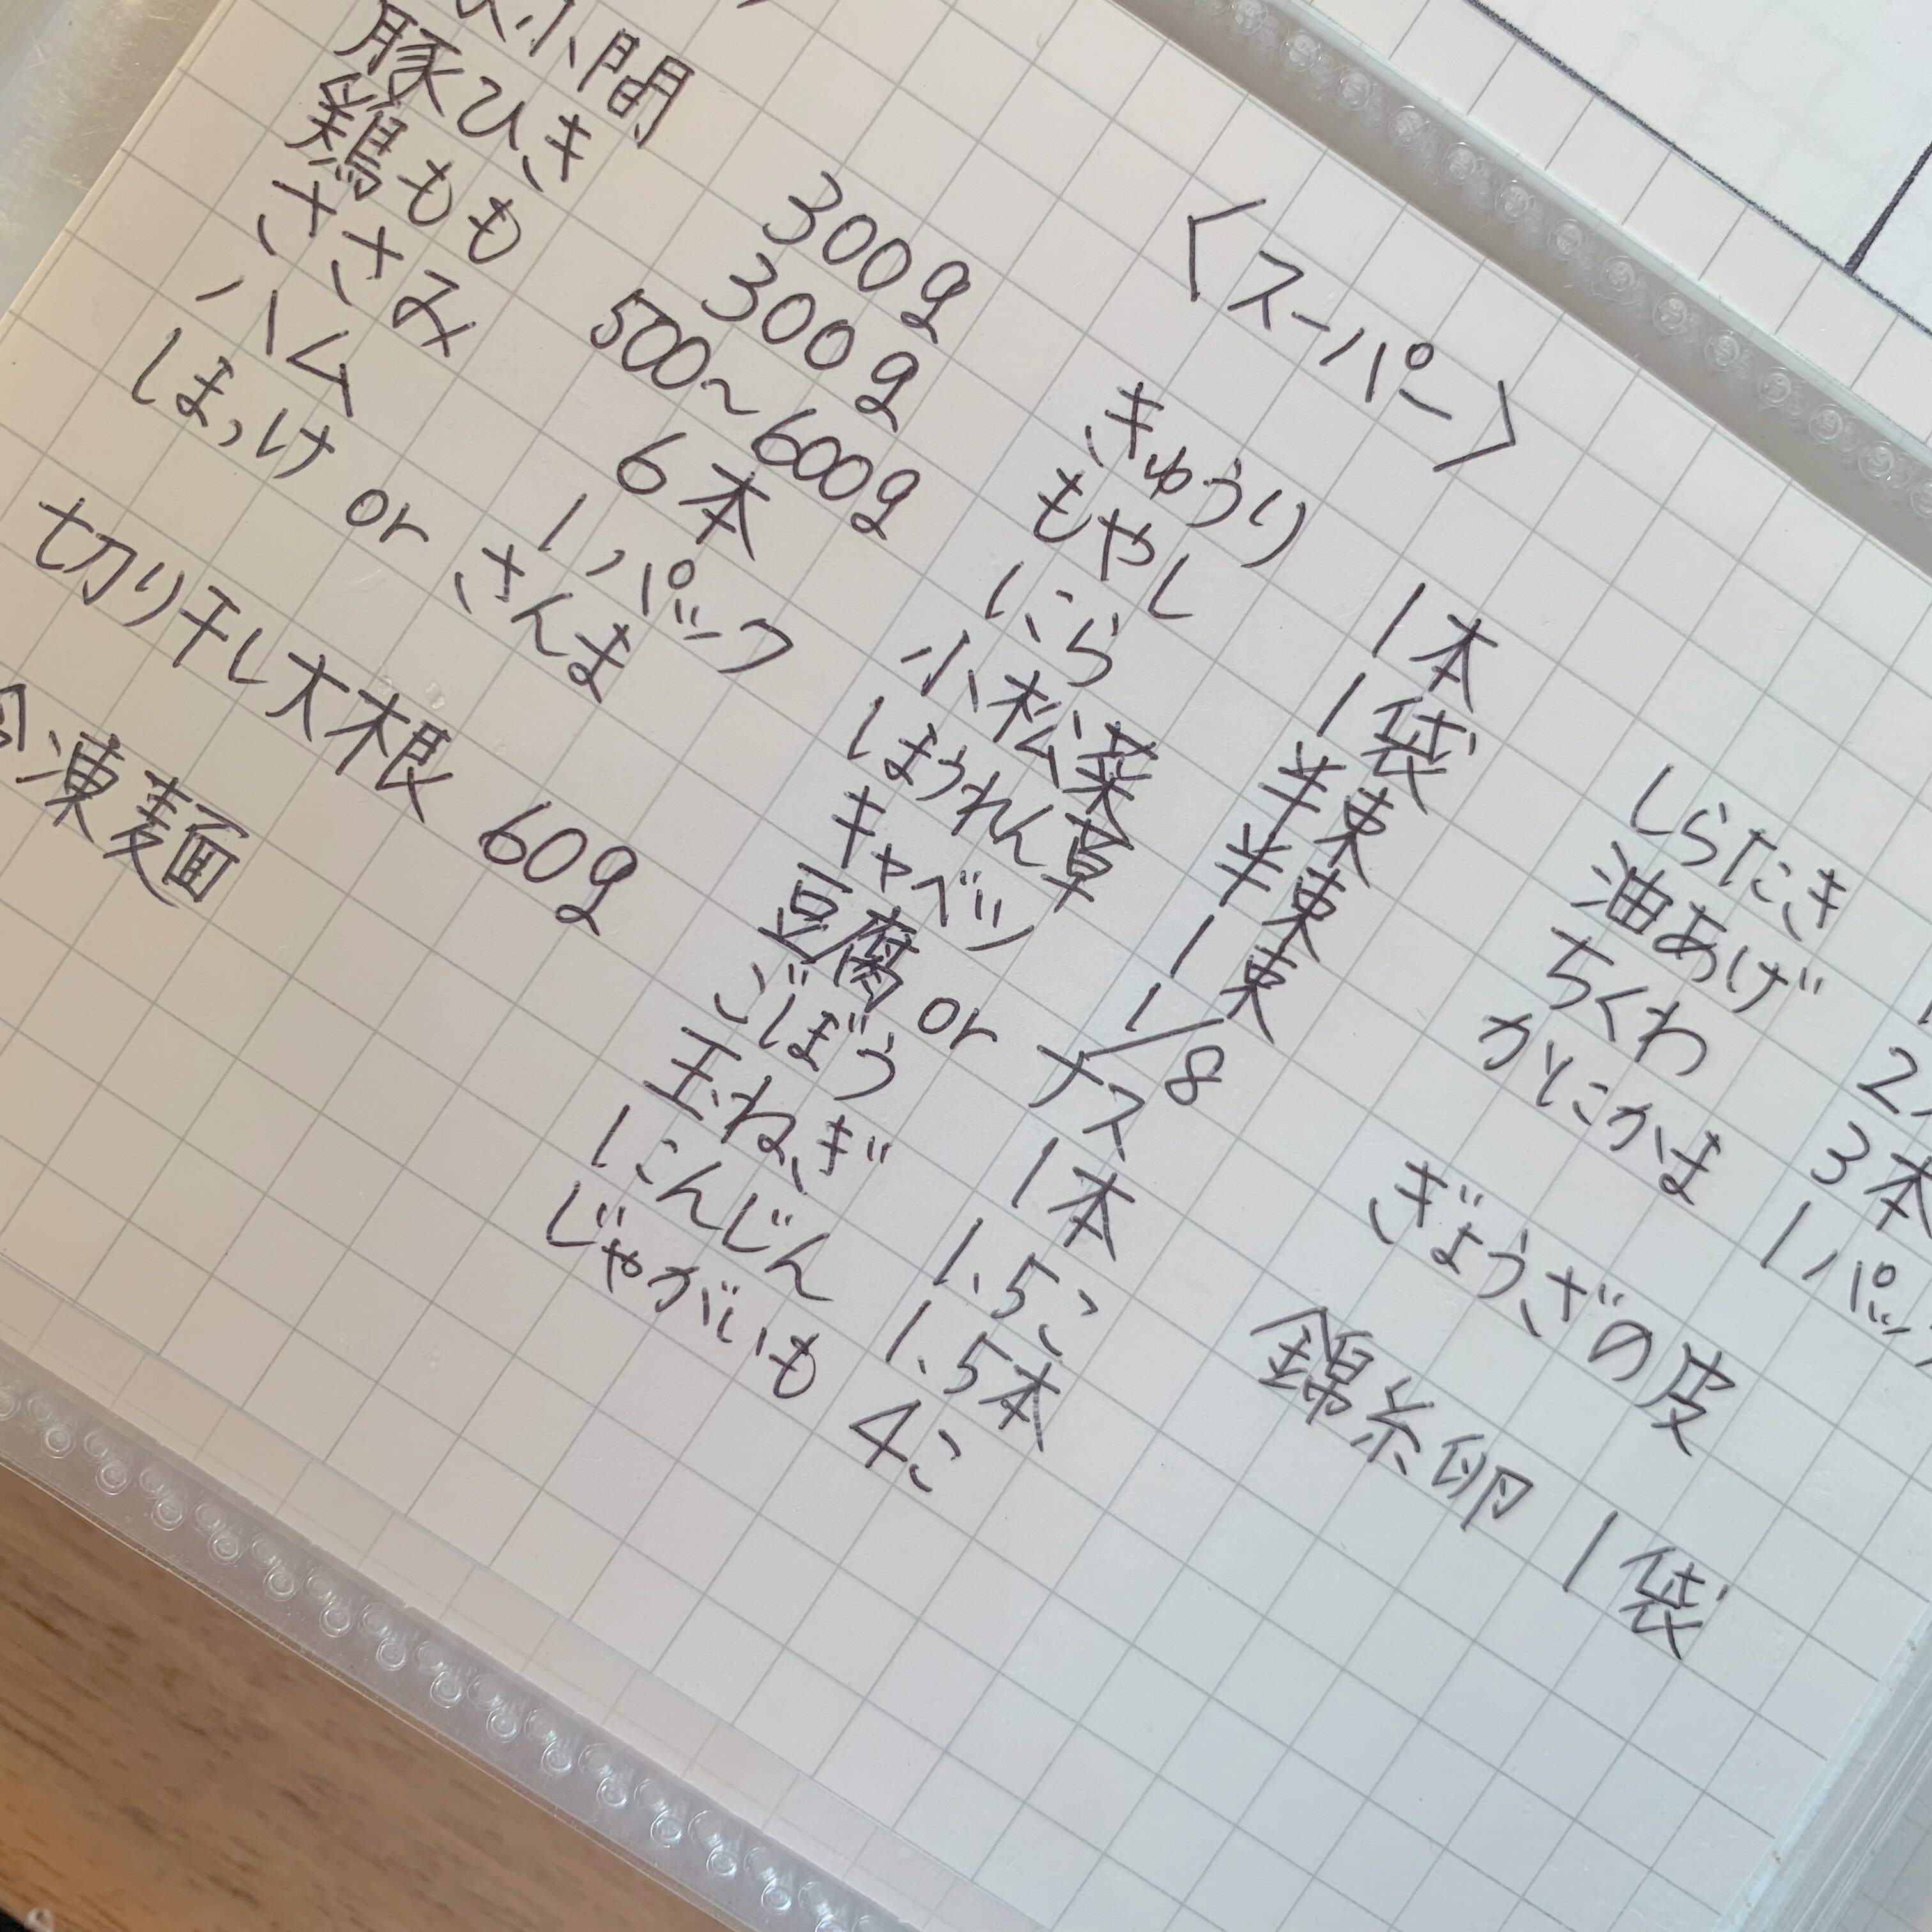 小間 300g
豚ひき 300g
鶏もも 500〜600g
ささみ 6本
ハム 1パック
ほっけ or さんま
切り干し大根 60g
凍麺
〈スーパー〉
きゅうり 1本
もやし 1袋
にら 半束
小松菜 半束
ほうれん草 1束
キャベツ 1/8
豆腐 or ナス
ごぼう 1本
玉ねぎ 1.5こ
にんじん 1.5本
じゃがいも 4こ
しらたき
油あげ 2
ちくわ 3本
かにかま 1パック
ぎょうざの皮
錦糸卵 1袋